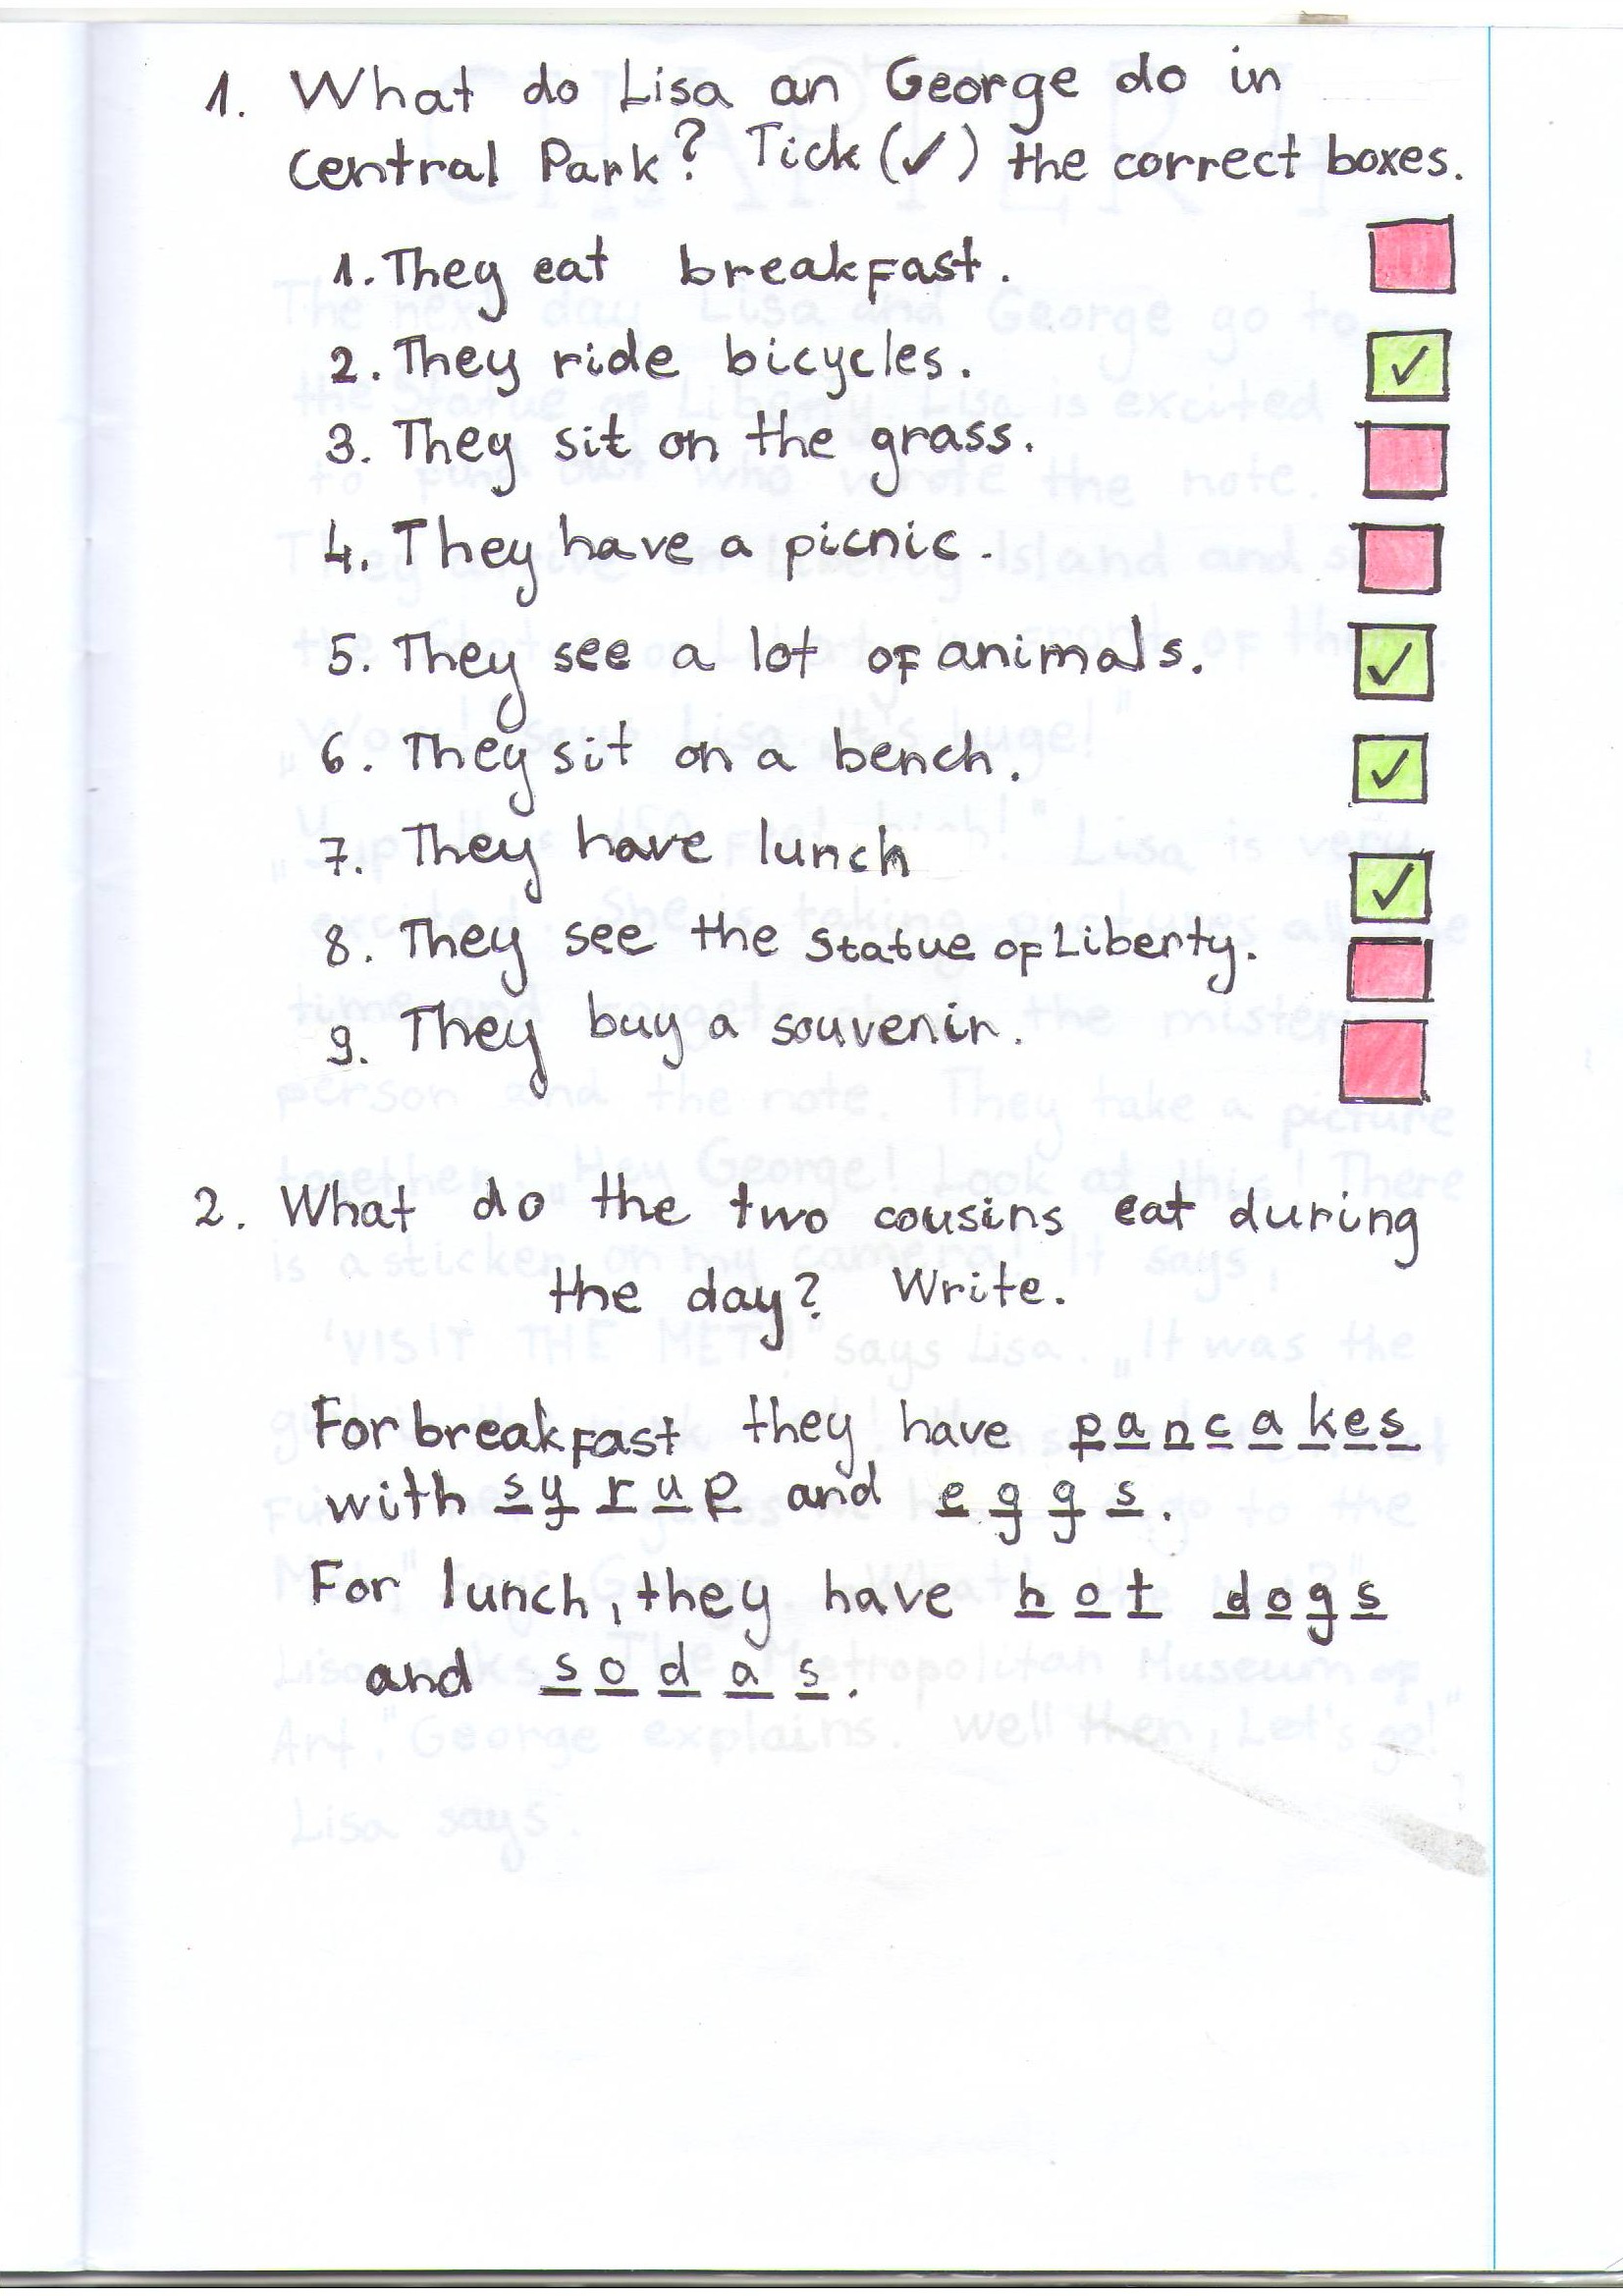 1. What do Lisa an George do in
Central Park? Tick (✓) the correct boxes.
1. They eat breakfast.
2. They ride bicycles. ✓
3. They sit on the grass.
4. They have a picnic.
5. They see a lot of animals. ✓
6. They sit on a bench. ✓
7. They have lunch ✓
8. They see the Statue of Liberty.
9. They buy a souvenir.
2. What do the two cousins eat during
the day? Write.
For breakfast they have pancakes
with syrup and eggs.
For lunch, they have hot dogs
and sodas.